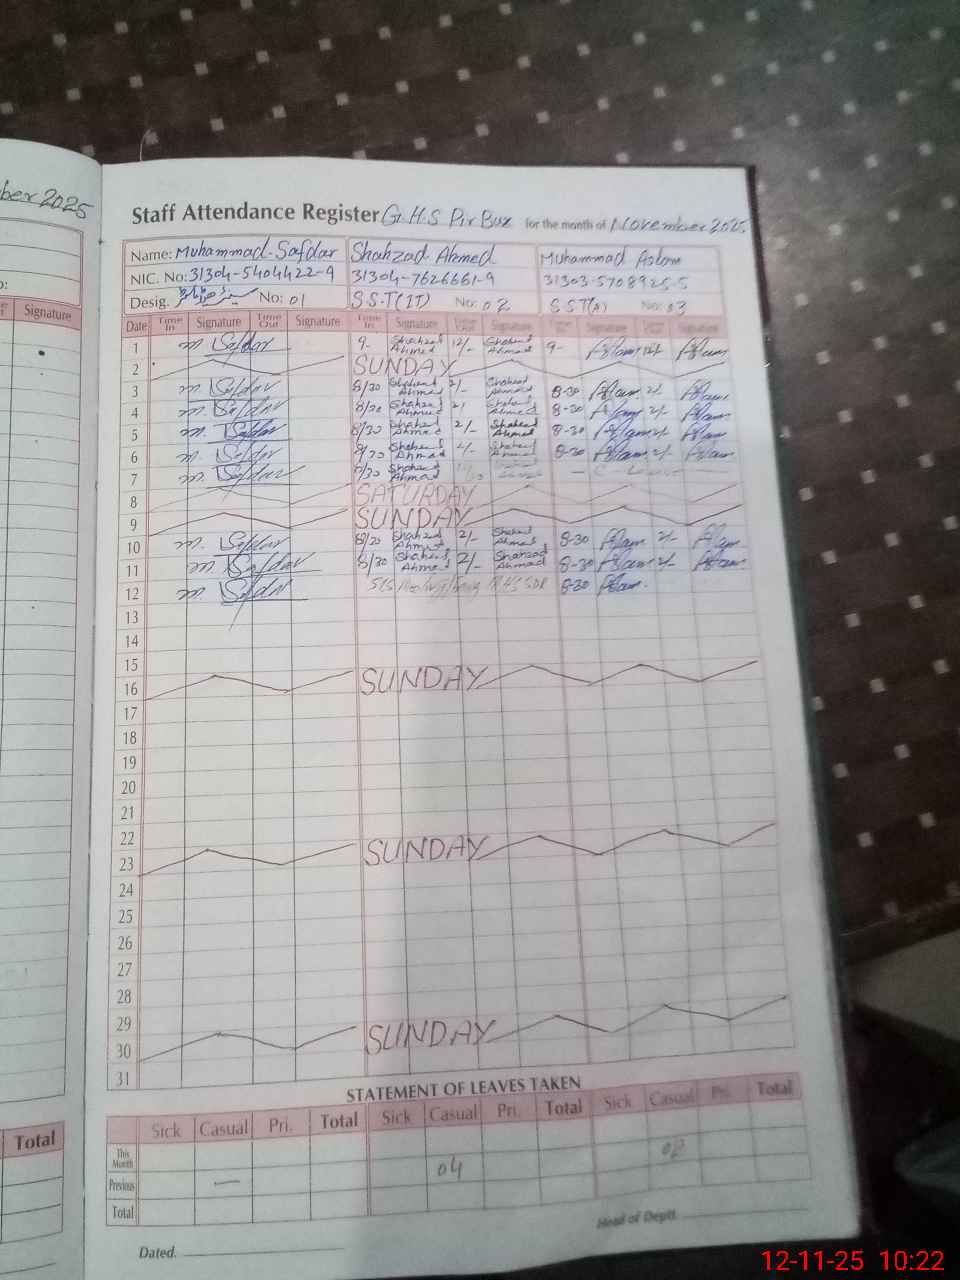 ber 2025
Signature
Total
Staff Attendance Register G.H.S Pir Bux for the month of November 2025
Name: Muhammad Safdar Shahzad Ahmed Muhammad Aslam
NIC. No: 31304-5404422-9 31304-7626661-9 31303-5708925-5
Desig. No: 01 S.S.T(IT) No: 02 SST(A) No: 03
Date Time In Signature Time Out Signature Time In Signature Time Out Signature Time In Signature Time Out Signature
1 m. Safdar 9- Shahzad Ahmed 12/- Shahzad Ahmed 9- Aslam 12/- Aslam
2 SUNDAY
3 m. Safdar 8/30 Shahzad Ahmed 2/- Shahzad Ahmed 8-30 Aslam 2/- Aslam
4 m. Safdar 8/30 Shahzad Ahmed 2/ Shahzad Ahmed 8-30 Aslam 2/- Aslam
5 m. Safdar 8/30 Shahzad Ahmed 2/- Shahzad Ahmed 8-30 Aslam 2/- Aslam
6 m. Safdar 8/30 Shahzad Ahmed 2/- Shahzad Ahmed 8-30 Aslam 2/- Aslam
7 m. Safdar 8/30 Shahzad Ahmed — C Leave
8 SATURDAY
9 SUNDAY
10 m. Safdar 8/30 Shahzad Ahmed 2/- Shahzad Ahmed 8-30 Aslam 2/- Aslam
11 m. Safdar 8/30 Shahzad Ahmed 2/- Shahzad Ahmed 8-30 Aslam 2/- Aslam
12 m. Safdar SDP 8-30 Aslam
13
14
15
16 SUNDAY
17
18
19
20
21
22
23 SUNDAY
24
25
26
27
28
29
30 SUNDAY
31
STATEMENT OF LEAVES TAKEN
Sick Casual Pri. Total Sick Casual Pri. Total Sick Casual Pri. Total
This Month
Previous — 04
Total
Dated. Head of Deptt.
12-11-25 10:22